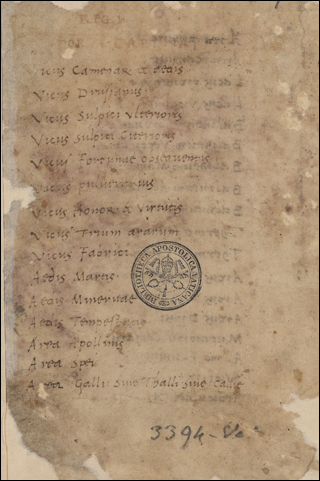 REG. I
POR CAPENA
Vicus Camenar & aetis
Vicus Drusianus
Vicus Sulpici ulterioris
Vicus sulpici citerioris
Vicus Fortunae obsequentis
Vicus pulverarius
Vicus Honor & Virtutis
Vicus Trium ararum
Vicus Fabrici
Aedis Martis
Aedis Minervae
Aedis Tempes
Area Apollinis
Area Spei
Area Galli sive Thalli sive
BIBLIOTHECA APOSTOLICA VATICANA
3394